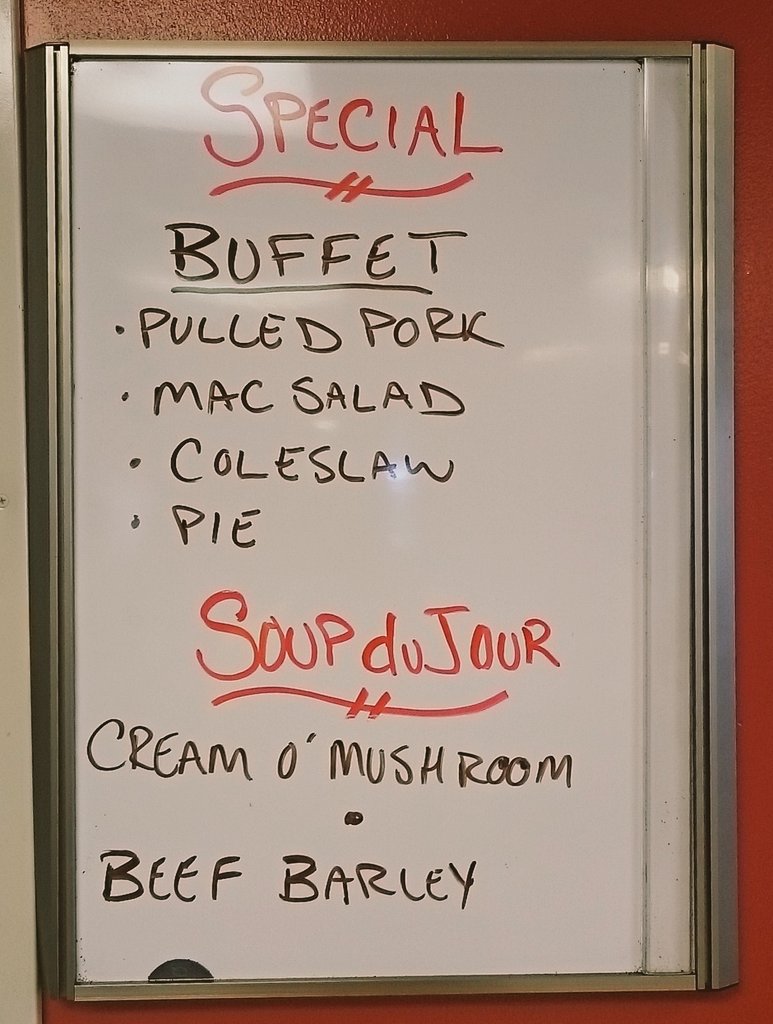 SPECIAL
BUFFET
• PULLED PORK
• MAC SALAD
• COLESLAW
• PIE
SOUP du JOUR
CREAM O' MUSHROOM
•
BEEF BARLEY